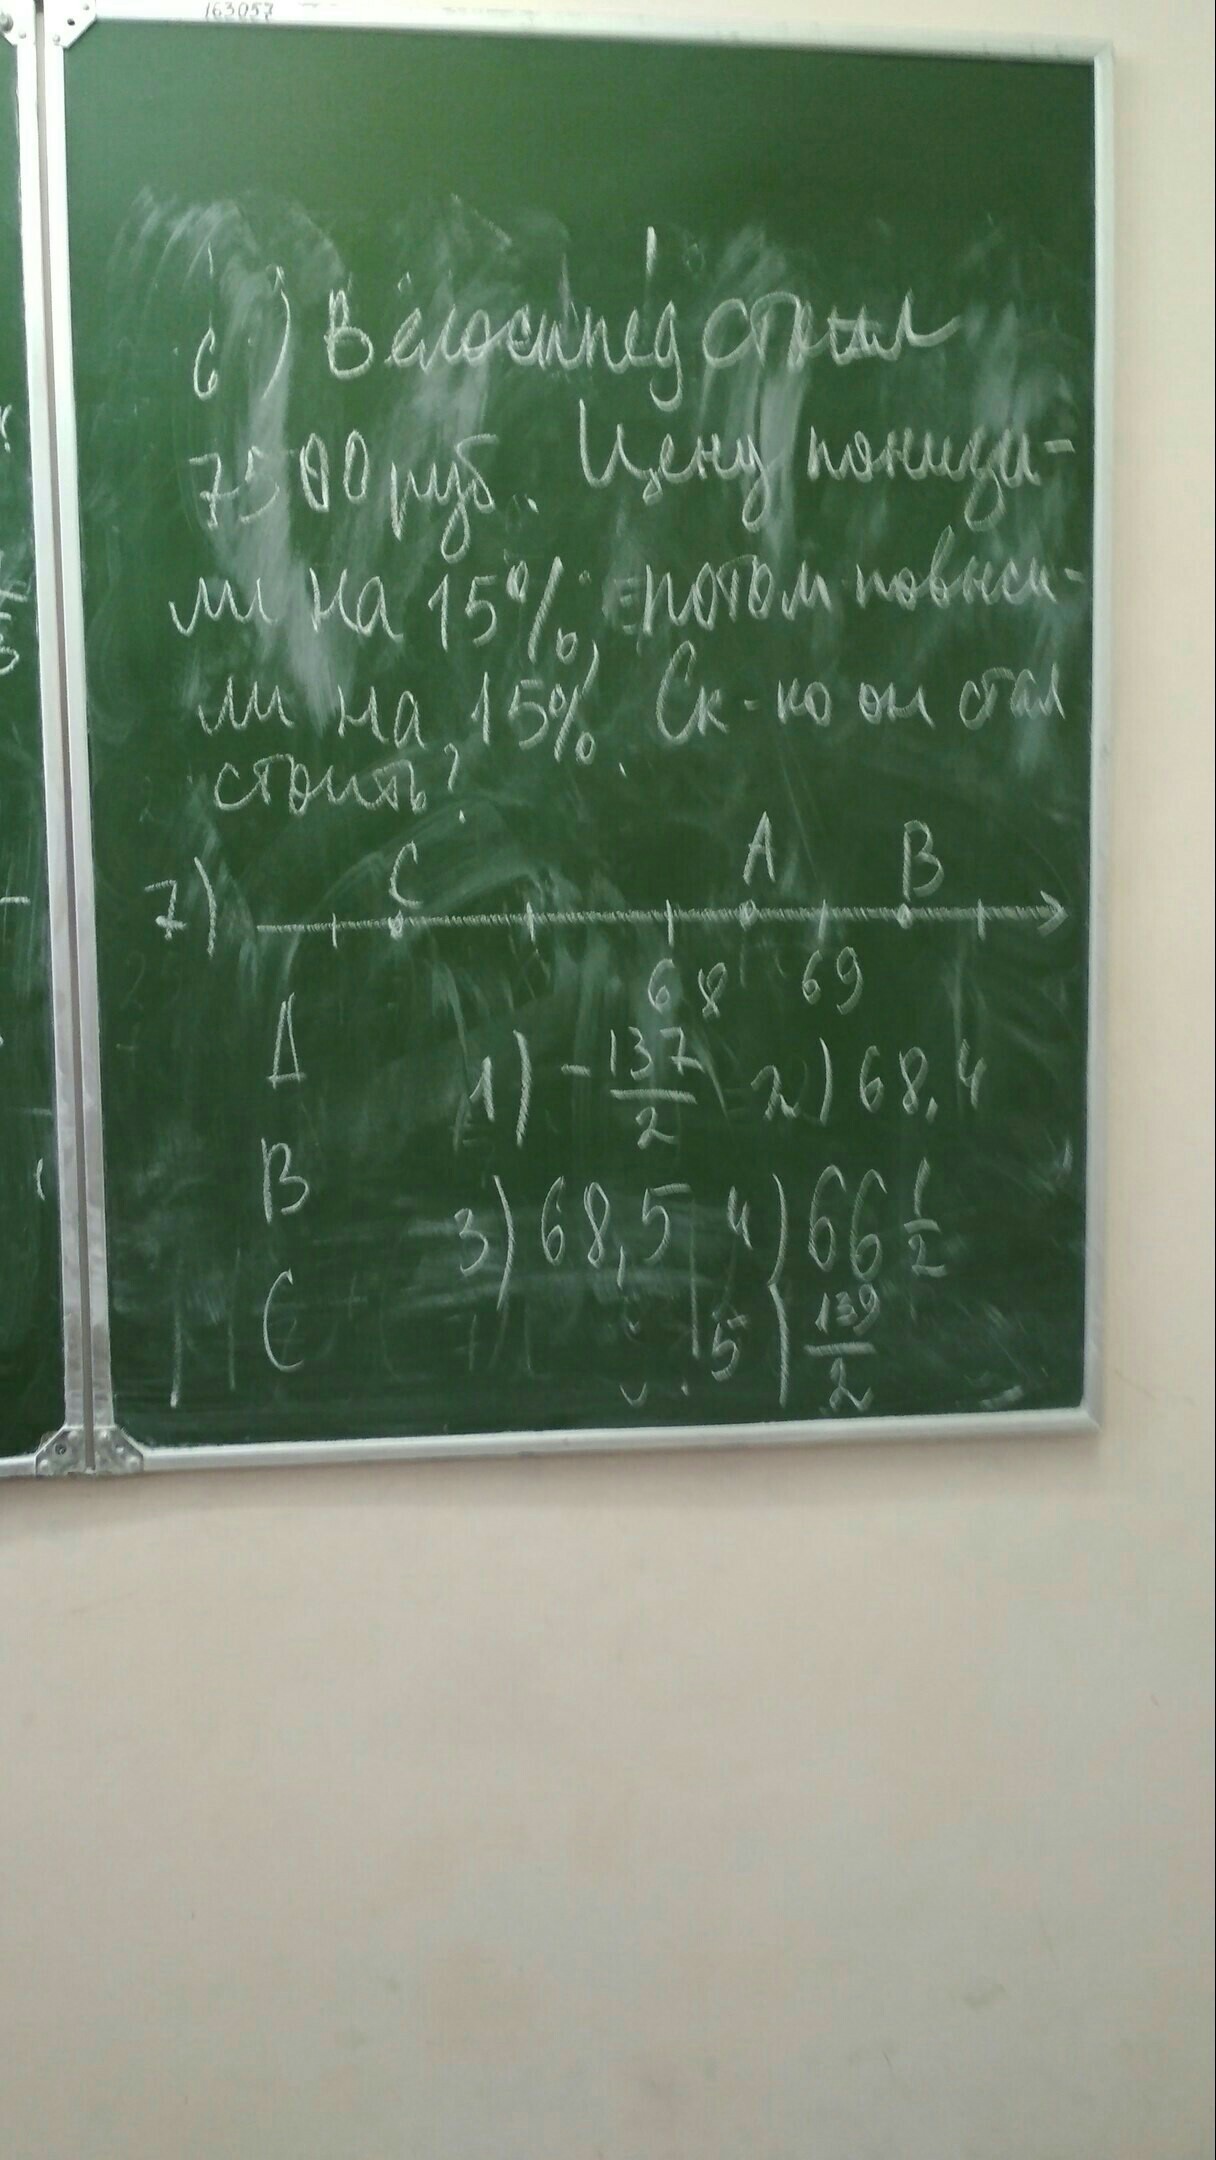 163057
6) Велосипед стоил
7500 руб. Цену понизи-
ли на 15%, потом повыси-
ли на 15%. Ск-ко он стал
стоить?
7) C A B
68 69
A 1) -137/2 2) 68,4
B 3) 68,5 4) 66 1/2
C 5) 139/2